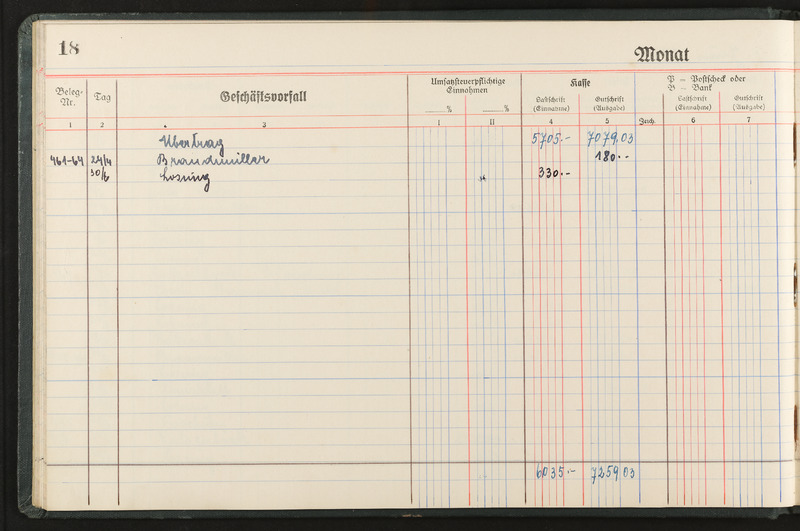 18
Monat
Beleg-Nr. Tag Geschäftsvorfall Umsatzsteuerpflichtige Einnahmen Kasse P = Postscheck oder B = Bank
% % Lastschrift (Einnahme) Gutschrift (Ausgabe) Lastschrift (Einnahme) Gutschrift (Ausgabe)
1 2 3 I II 4 5 Zeich. 6 7
Übertrag 5705.- 7079.03
461-64 24/4 Brandmüller 180.--
30/6 Losung 330.--
6035.- 7259 03